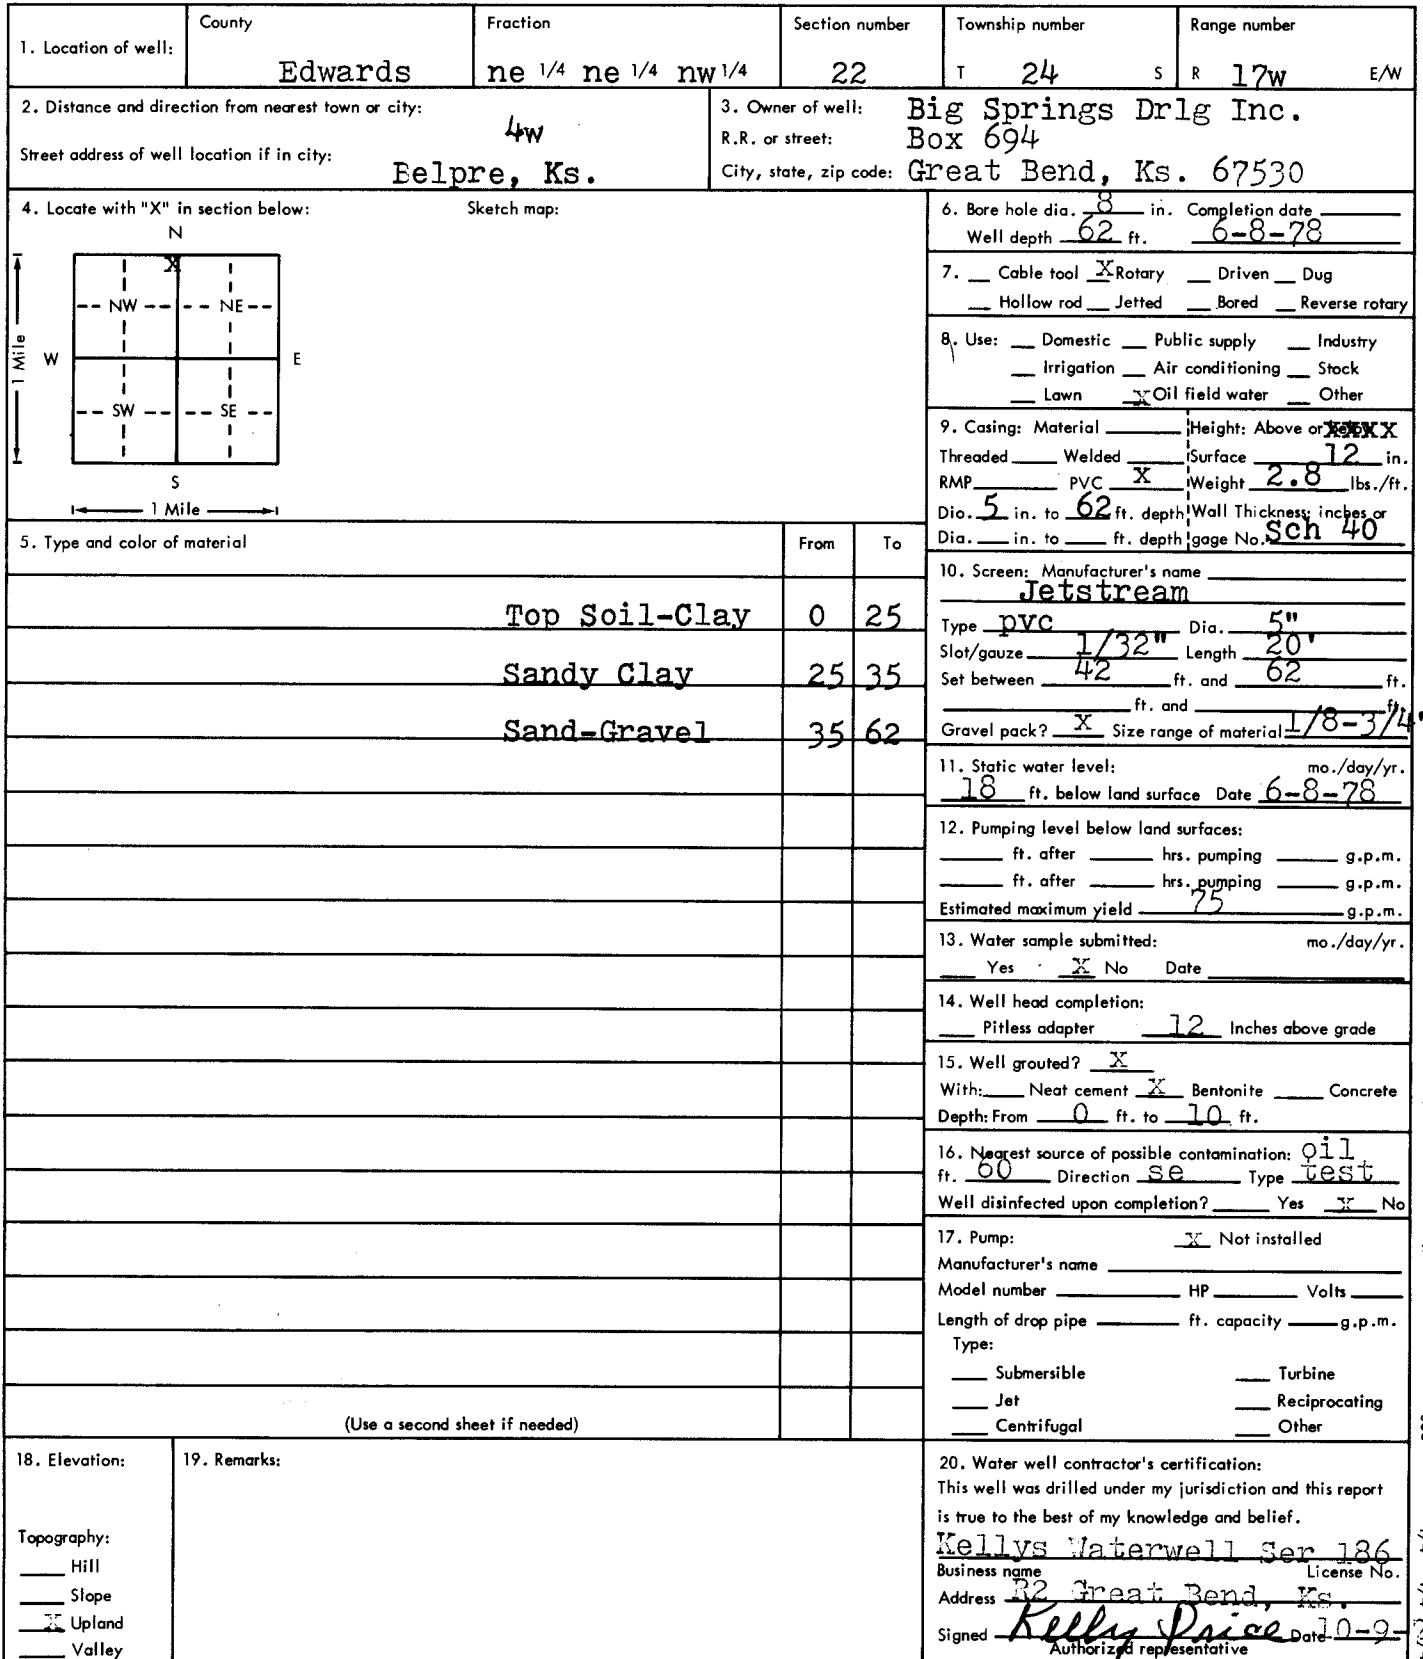 1. Location of well:
County Fraction Section number Township number Range number
Edwards ne 1/4 ne 1/4 nw 1/4 22 T 24 S R 17w E/W
2. Distance and direction from nearest town or city:
4w
Street address of well location if in city:
Belpre, Ks.
3. Owner of well: Big Springs Drlg Inc.
R.R. or street: Box 694
City, state, zip code: Great Bend, Ks. 67530
4. Locate with "X" in section below: Sketch map:
N
X
NW NE
W E
1 Mile
SW SE
S
1 Mile
5. Type and color of material From To
Top Soil-Clay 0 25
Sandy Clay 25 35
Sand-Gravel 35 62
(Use a second sheet if needed)
6. Bore hole dia. 8 in. Completion date
Well depth 62 ft. 6-8-78
7. Cable tool X Rotary Driven Dug
Hollow rod Jetted Bored Reverse rotary
8. Use: Domestic Public supply Industry
Irrigation Air conditioning Stock
Lawn X Oil field water Other
9. Casing: Material Height: Above or XXXX
Threaded Welded Surface 12 in.
RMP PVC X Weight 2.8 lbs./ft.
Dio. 5 in. to 62 ft. depth Wall Thickness: inches or
Dia. in. to ft. depth gage No. Sch 40
10. Screen: Manufacturer's name
Jetstream
Type pvc Dia. 5"
Slot/gauze 1/32" Length 20'
Set between 42 ft. and 62 ft.
ft. and ft.
Gravel pack? X Size range of material 1/8-3/4"
11. Static water level: mo./day/yr.
18 ft. below land surface Date 6-8-78
12. Pumping level below land surfaces:
ft. after hrs. pumping g.p.m.
ft. after hrs. pumping g.p.m.
Estimated maximum yield 75 g.p.m.
13. Water sample submitted: mo./day/yr.
Yes X No Date
14. Well head completion:
Pitless adapter 12 Inches above grade
15. Well grouted? X
With: Neat cement X Bentonite Concrete
Depth: From 0 ft. to 10 ft.
16. Nearest source of possible contamination: oil
ft. 60 Direction se Type test
Well disinfected upon completion? Yes X No
17. Pump: X Not installed
Manufacturer's name
Model number HP Volts
Length of drop pipe ft. capacity g.p.m.
Type:
Submersible Turbine
Jet Reciprocating
Centrifugal Other
18. Elevation:
Topography:
Hill
Slope
X Upland
Valley
19. Remarks:
20. Water well contractor's certification:
This well was drilled under my jurisdiction and this report
is true to the best of my knowledge and belief.
Kellys Waterwell Ser 186
Business name License No.
Address R2 Great Bend, Ks.
Signed Kelly Price Date 10-9-
Authorized representative